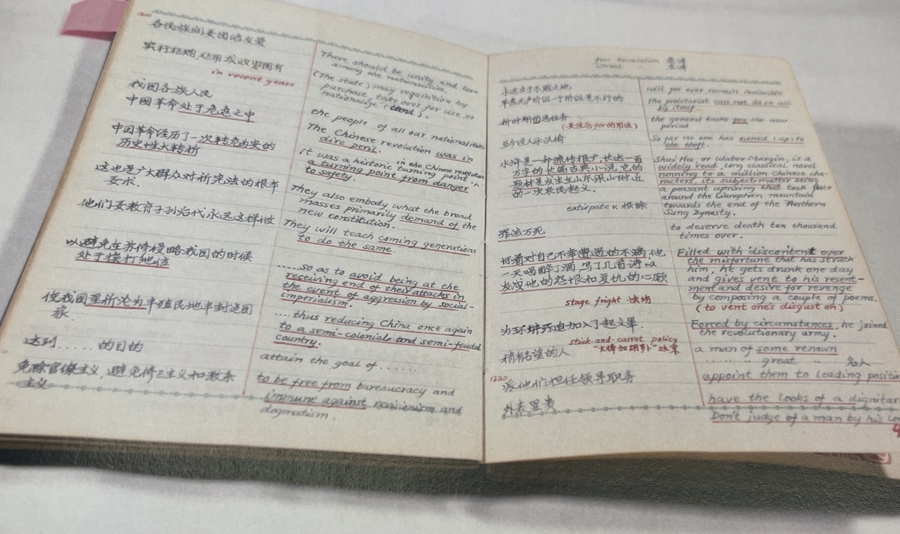 各民族间要团结友爱
There should be unity and love
among the nationalities.
实行征购、征用或收归国有
(The state) may requisition by
purchase, take over for use or
nationalize (land).
in recent years
我国各族人民
the people of all our nationalities
中国革命处于危急之中
The Chinese revolution was in
dire peril.
中国革命经历了一次转危为安的
历史性大转折
It was a historic turning point in
in the Chinese revolution
a turning point from danger
to safety.
这也是广大群众对新宪法的根本
要求.
They also embody what the broad
masses primarily demand of the
new constitution.
他们要教育子孙后代永远这样做
They will teach coming generations
to do the same.
以避免在苏修侵略我国的时候
处于挨打地位
.....so as to avoid being at the
receiving end of their attacks in
the event of aggression by social-
imperialism.
使我国重新沦为半殖民地半封建国
家.
.... thus reducing China once again
to a semi-colonial and semi-feudal
country.
达到......的目的
attain the goal of .......
免除官僚主义,避免修正主义和教条
主义
to be free from bureaucracy and
immune against revisionism and
dogmatism.
永远立于不败之地
will for ever remain invincible
单靠无产阶级一个阶级是不行的
The proletariat can not do it all
by itself.
新时期的总任务
the general tasks for the new
period
(要注意for的用法)
So far no one has
the theft.
水浒是一种流传很广,长达一百
万字的长篇古典小说,它的
题材是发生在山东梁山附近
的一次农民起义.
Shui Hu, or Water Margin, is a
widely read, long classical novel
running to a million Chinese cha-
racters, its subject-matter being
a peasant uprising that took place
around the Liangshan mountain
towards the end of the Northern
Sung Dynasty.
extirpate v. 根除
罪该万死
to deserve death ten thousand
times over.
怀着对自己不幸遭遇的不满,他
一天喝醉了酒,写了几首诗,以
发泄他的怨恨和复仇的心愿
Filled with discontent over
the misfortune that has struck
him, he gets drunk one day
and gives vent to his resent-
ment and desire for revenge
by composing a couple of poems.
(to vent one's disgust on)
stage fright 怯场
为环境所迫加入了起义军.
Forced by circumstances, he joined
the revolutionary army.
stick-and-carrot policy
"大棒加胡萝卜"政策
稍有名望的人
a man of some renown
great 名人
1220
派他们担任领导职务
appoint them to leading positio
have the looks of a dignitar
Don't judge of a man by his loo